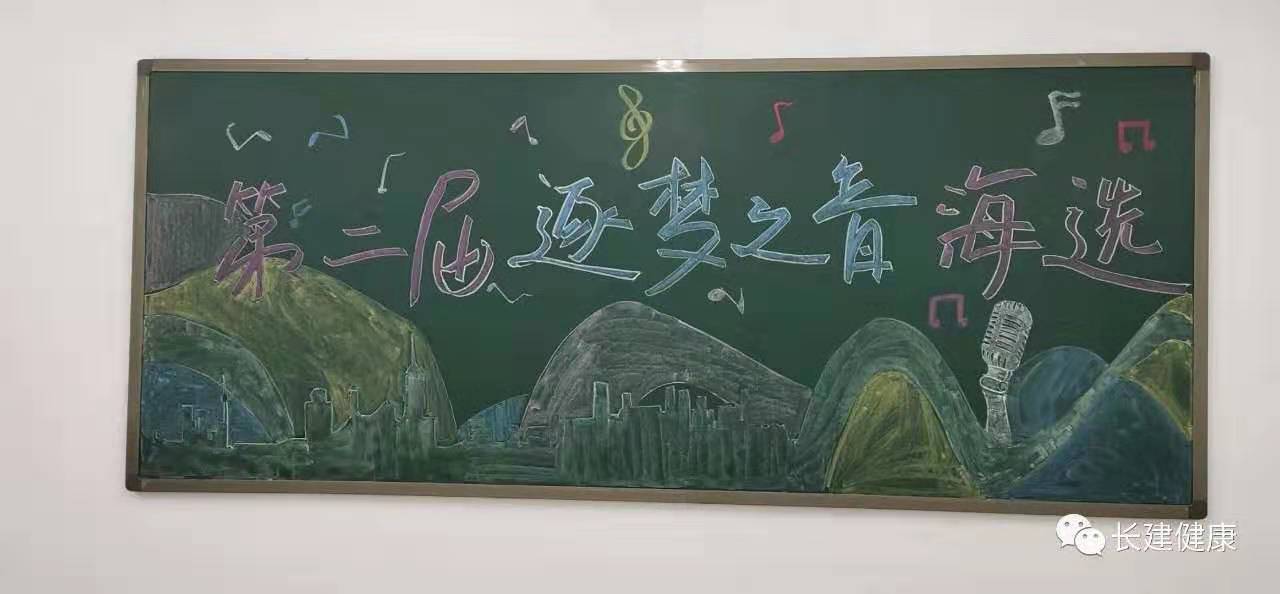 第二届逐梦之音海选
长建健康